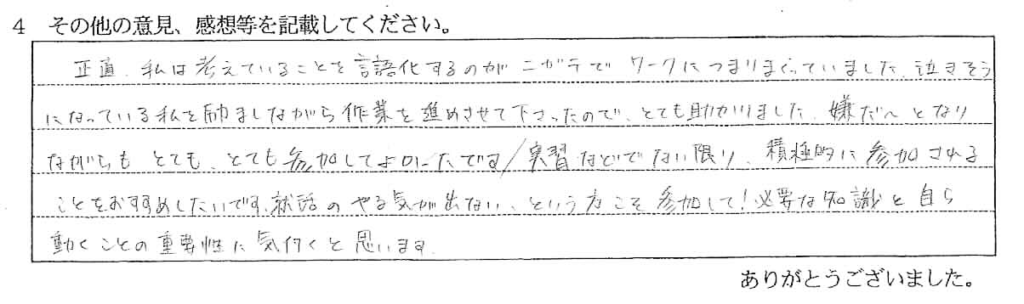 4 その他の意見、感想等を記載してください。
正直、私は考えていることを言語化するのがニガテで ワークにつまりまくっていました。泣きそう
になっている私を励ましながら作業を進めさせて下さったので、とても助かりました。嫌だ〜となり
ながらも とても、とても参加してよかったです/実習などでない限り、積極的に参加される
ことをおすすめしたいです。就活のやる気が出ない、という方こそ参加して!必要な知識と自ら
動くことの重要性に気付くと思います。
ありがとうございました。